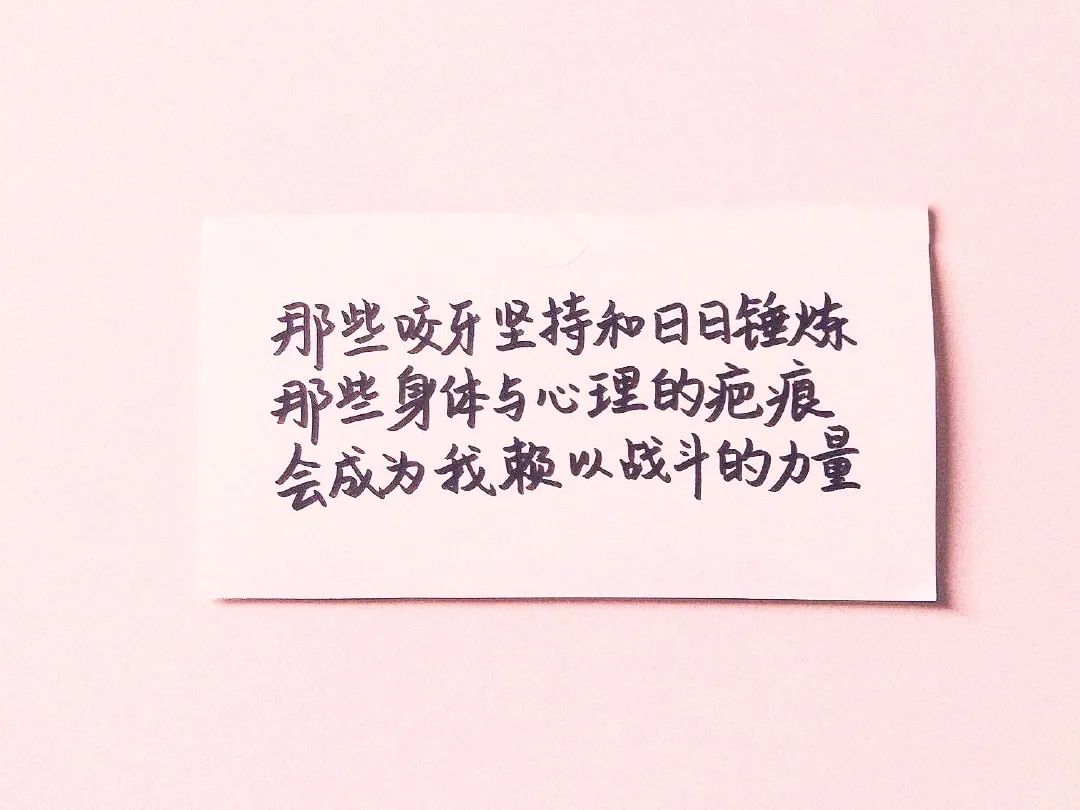 那些咬牙坚持和日日锤炼
那些身体与心理的疤痕
会成为我赖以战斗的力量